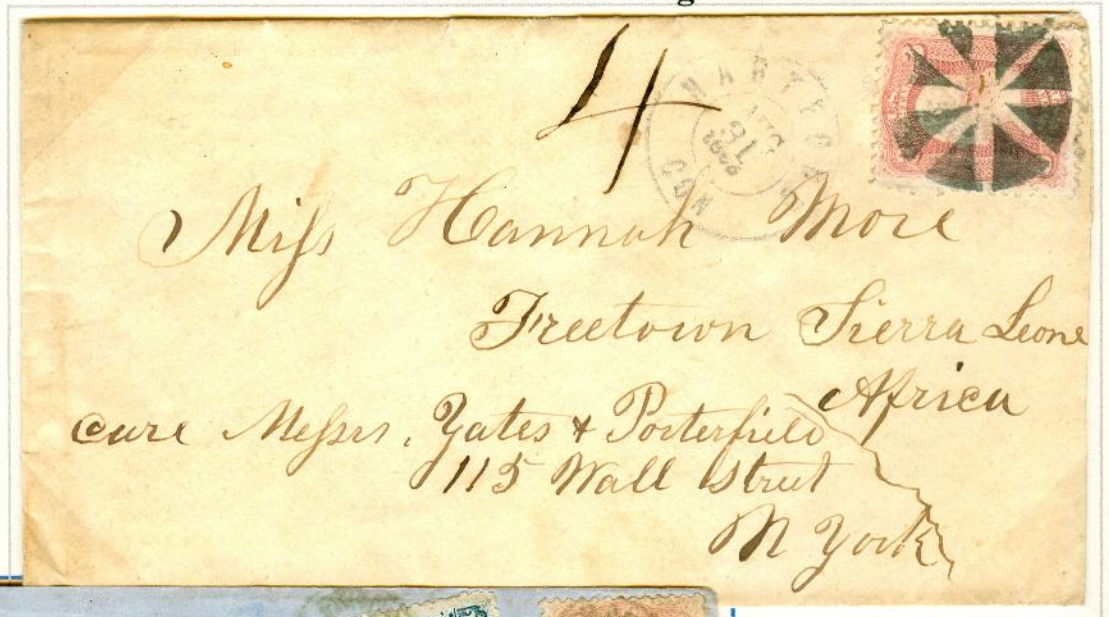 4
HARTFORD
CON
AUG
31
Miſs Hannah More
Freetown Sierra Leone
Africa
care Meſsrs. Yates & Porterfield
115 Wall Street
N York